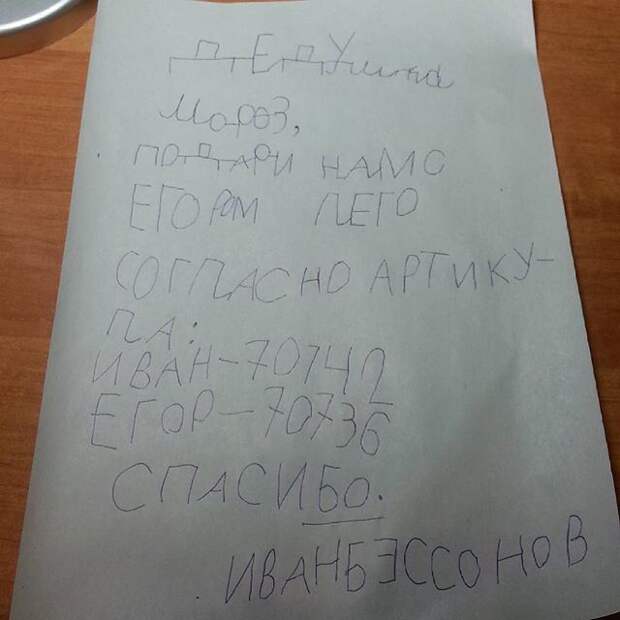 ДЕДУшка
МОРОЗ,
ПОДАРИ НАМ С
ЕГОРОМ ЛЕГО
СОГЛАСНО АРТИКУ-
ЛА:
ИВАН-70742
ЕГОР-70736
СПАСИБО.
ИВАН БЭССОНОВ